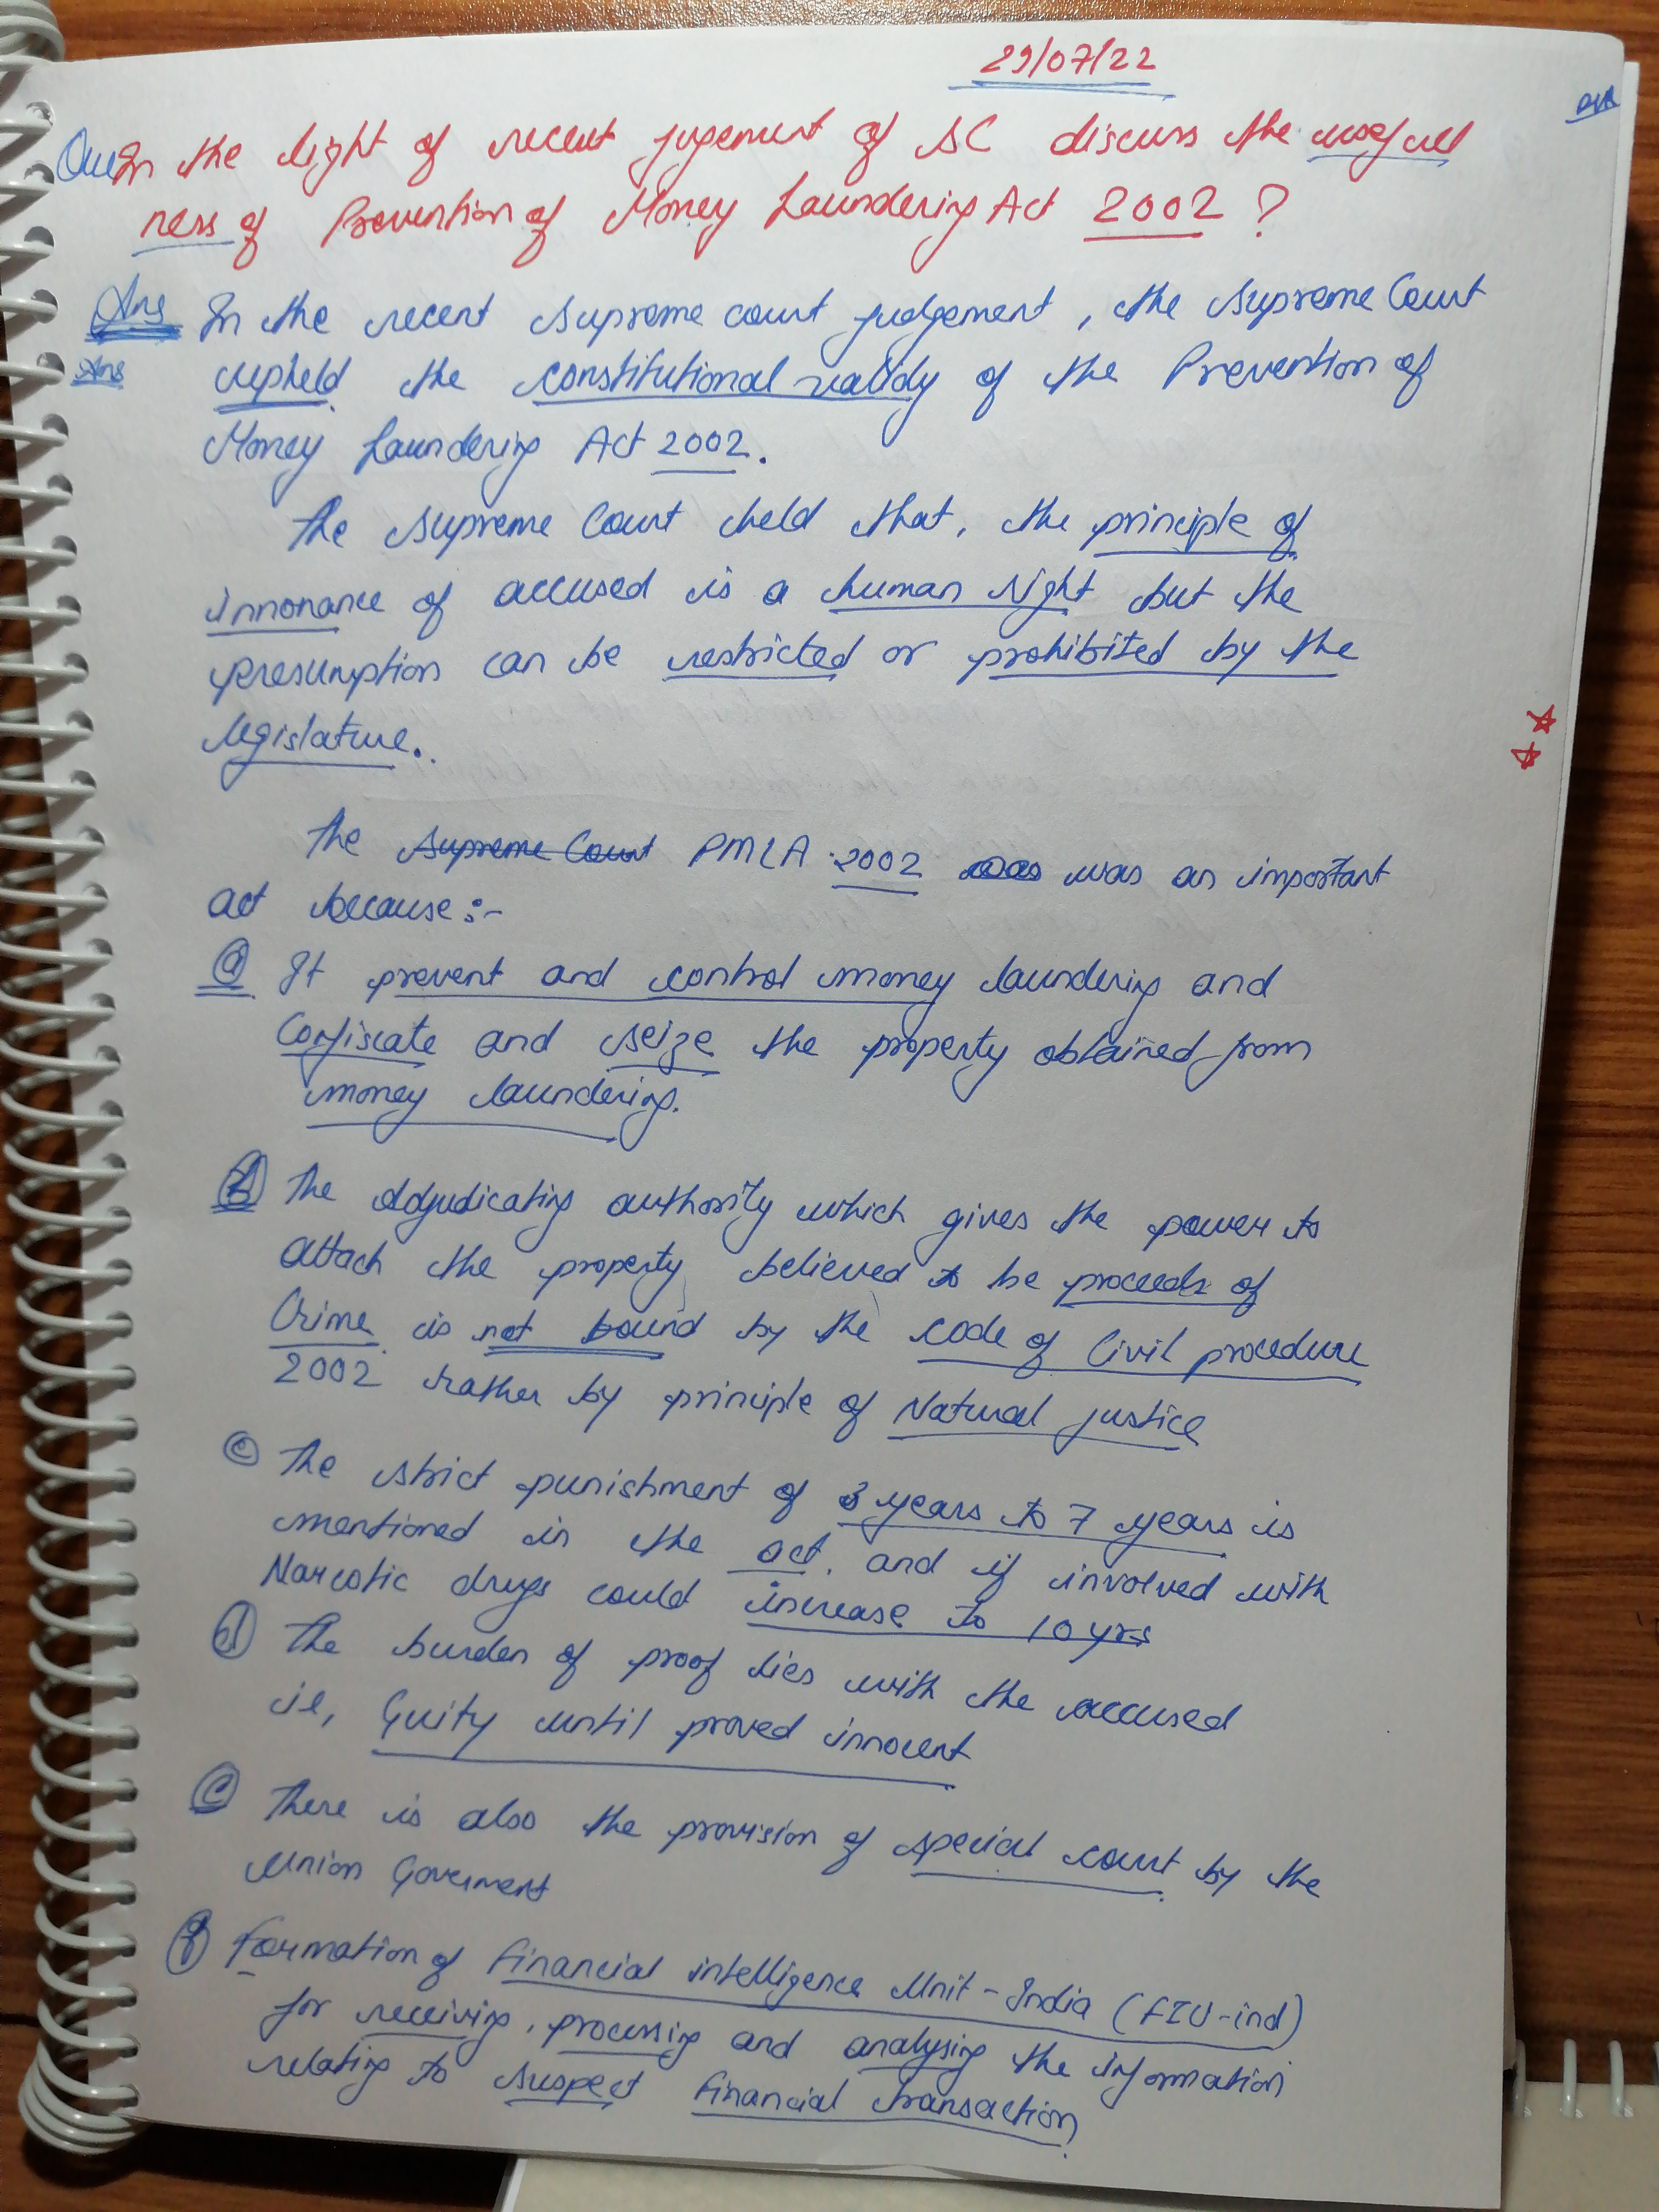 29/07/22
Que In the light of recent jugement of SC discuss the usefull
ness of Prevention of Money Laundering Act 2002 ?
Ans In the recent Supreme court judgement, the Supreme Court
Ans upheld the constitutional validy of the Prevention of
Money Laundering Act 2002.
The Supreme Court held that, the principle of
innonance of accused is a human right but the
presumption can be restricted or prohibited by the
legislature.
The Supreme Court PMLA 2002 was was an important
act because:-
(a) It prevent and control money laundering and
Confiscate and seize the property obtained from
money laundering.
(b) The Adjudicating authority which gives the power to
attach the property believed to be proceeds of
Crime is not bound by the code of Civil procedure
2002 rather by principle of Natural justice
(c) The strict punishment of 3 years to 7 years is
mentioned in the act. and if involved with
Narcotic drugs could increase to 10 yrs
(d) The burden of proof lies with the accused
ie, Guity until proved innocent
(e) There is also the provision of special court by the
Union Goverment
(f) Formation of financial intelligence Unit - India (FIU-ind)
for receiving, processing and analysing the information
relating to suspect financial transaction.